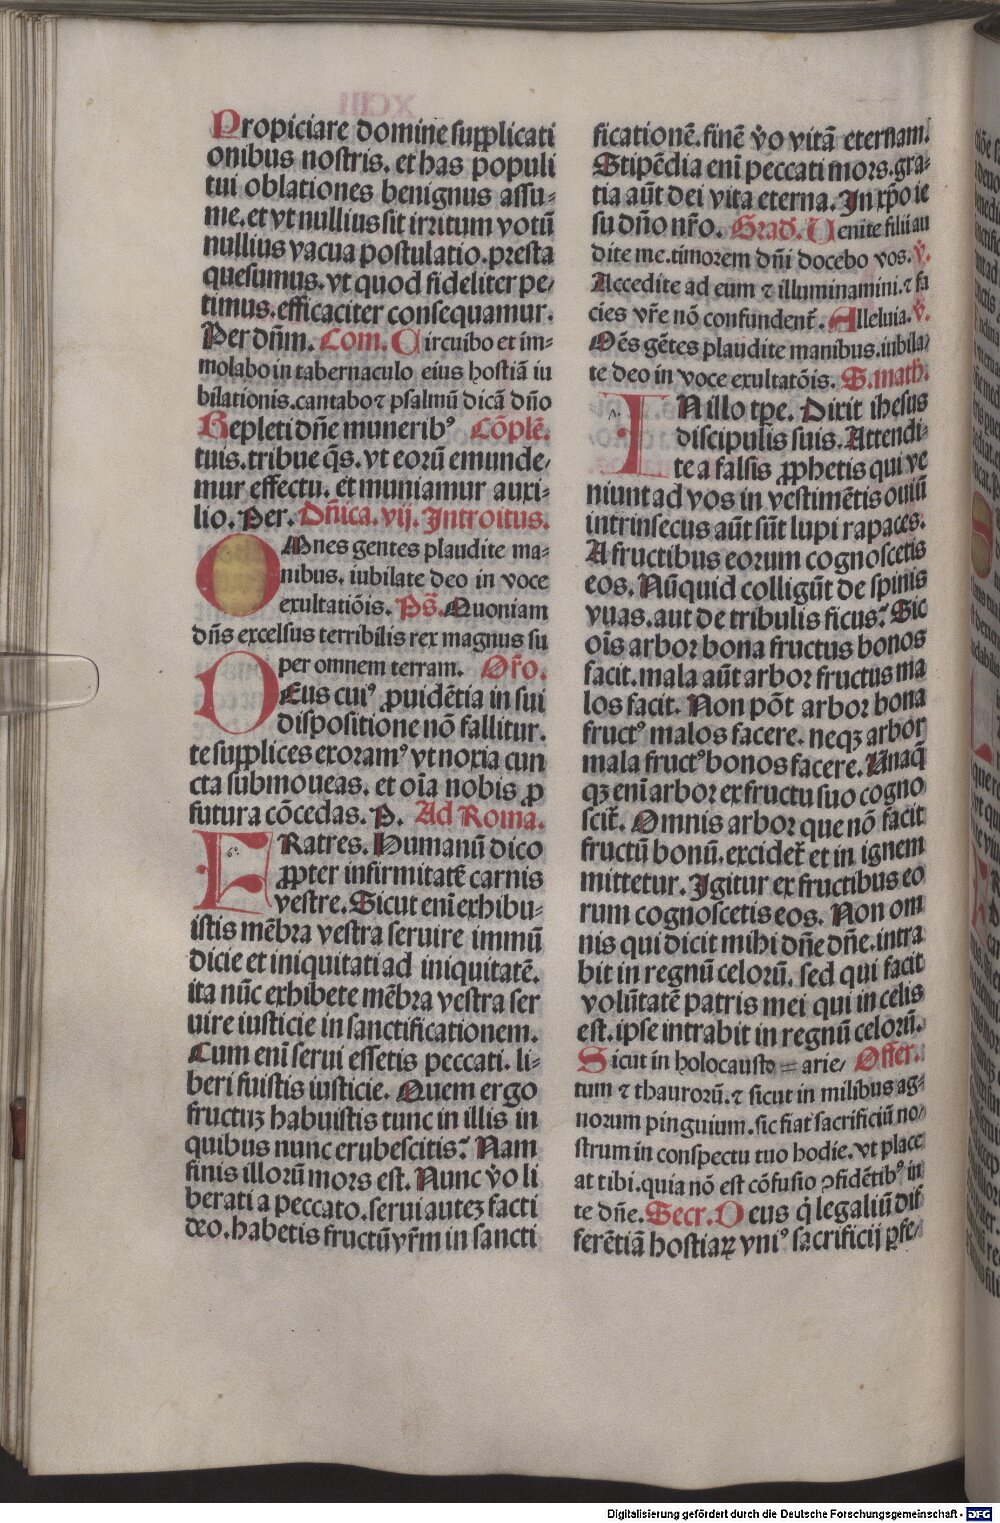 Propiciare domine supplicati
onibus nostris. et has populi
tui oblationes benignus assu-
me. et vt nullius sit irritum votū
nullius vacua postulatio. presta
quesumus. vt quod fideliter pe/
timus. efficaciter consequamur.
Per dn̄m. Com. Circuibo et im-
molabo in tabernaculo eius hostiā iu
bilationis. cantabo ⁊ psalmū dicā dn̄o
Repleti dn̄e munerib⁹ Cōple.
tuis. tribue q̄s. vt eorū emunde/
mur effectu. et muniamur auxi-
lio. Per. Dn̄ica. vij. Introitus.
OMnes gentes plaudite ma-
nibus. iubilate deo in voce
exultatiōis. Ps̄. Quoniam
dn̄s excelsus terribilis rex magnus su
per omnem terram. Or̄o.
DEus cui⁹ ꝓuidētia in sui
dispositione nō fallitur.
te supplices exoram⁹ vt noxia cun
cta submoueas. et oīa nobis ꝓ
futura cōcedas. P. Ad Roma.
FRatres. Humanū dico
ꝓpter infirmitatē carnis
vestre. Sicut enī exhibu-
istis mēbra vestra seruire immū
dicie et iniquitati ad iniquitatē.
ita nūc exhibete mēbra vestra ser
uire iusticie in sanctificationem.
Cum enī serui essetis peccati. li-
beri fuistis iusticie. Quem ergo
fructuꝫ habuistis tunc in illis in
quibus nunc erubescitis? Nam
finis illorū mors est. Nunc v̄o li
berati a peccato. serui auteꝫ facti
deo. habetis fructū vr̄m in sancti
ficationē. finē v̄o vitā eternam.
Stipēdia enī peccati mors. gra-
tia aūt dei vita eterna. In xp̄o ie
su dn̄o nr̄o. Grad. Uenite filii au
dite me. timorem dn̄i docebo vos. ℣.
Accedite ad eum ⁊ illuminamini. ⁊ fa
cies vr̄e nō confundent̄. Alleluia. ℣.
Om̄s gētes plaudite manibus. iubila/
te deo in voce exultatōis. S. math.
IN illo tp̄e. Dixit ihesus
discipulis suis. Attendi-
te a falsis ꝓphetis qui ve
niunt ad vos in vestimētis ouiū
intrinsecus aūt sūt lupi rapaces.
A fructibus eorum cognoscetis
eos. Nūquid colligūt de spinis
vuas. aut de tribulis ficus? Sic
oīs arbor bona fructus bonos
facit. mala aūt arbor fructus ma
los facit. Non pōt arbor bona
fruct⁹ malos facere. neqꝫ arbor
mala fruct⁹ bonos facere. Unaq̄
qꝫ enī arbor ex fructu suo cogno
scit̄. Omnis arbor que nō facit
fructū bonū. excidet̄ et in ignem
mittetur. Igitur ex fructibus eo
rum cognoscetis eos. Non om
nis qui dicit mihi dn̄e dn̄e. intra
bit in regnū celorū. sed qui facit
volūtatē patris mei qui in celis
est. ipse intrabit in regnū celorū.
Sicut in holocausto = arie/ Offer.
tum ⁊ thaurorū. ⁊ sicut in milibus ag-
norum pinguium. sic fiat sacrificiū no/
strum in conspectu tuo hodie. vt place
at tibi. quia nō est cōfusio ꝯfidētib⁹ in
te dn̄e. Secr. Deus q̇ legaliū dif
ferētiā hostiaꝝ vni⁹ sacrificij ꝑfe/
Digitalisierung gefördert durch die Deutsche Forschungsgemeinschaft - DFG